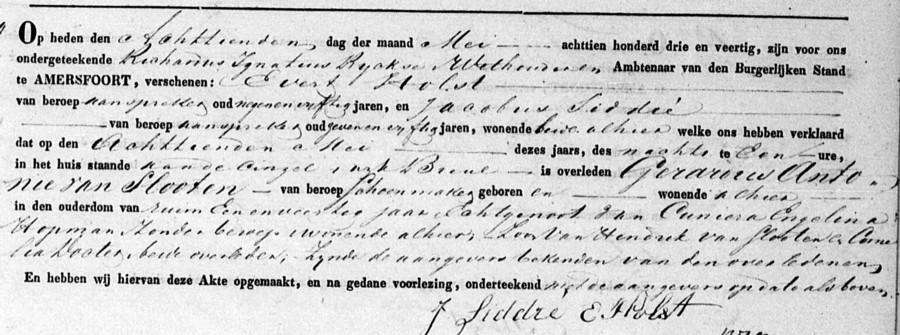 Op heden den Achttienden dag der maand Mei achttien honderd drie en veertig, zijn voor ons
ondergeteekende Richardus Ignatius Ryckse Wethouder en Ambtenaar van den Burgerlijken Stand
te AMERSFOORT, verschenen: Evert Holst
van beroep aanspreker oud negenenvyftig jaren, en Jacobus Siddré
van beroep aanspreker oud zevenenvyftig jaren, wonende beide alhier welke ons hebben verklaard
dat op den Achttienden Mei dezes jaars, des nachts te Een ure,
in het huis staande aan de Cingel wyk B is overleden Gerardus Anto
nie van Slooten van beroep Schoenmaker geboren en wonende alhier
in den ouderdom van ruim Eenenveertig jaar Echtgenoot van Cuniera Engelina
Hopman zonder beroep wonende alhier, Zoon van Hendrik van Slooten & Corne
lia beide overleden; zynde de aangevers bekenden van den overledenen,
En hebben wij hiervan deze Akte opgemaakt, en na gedane voorlezing, onderteekend met de aangevers op dato als boven.
J Siddré E Holst